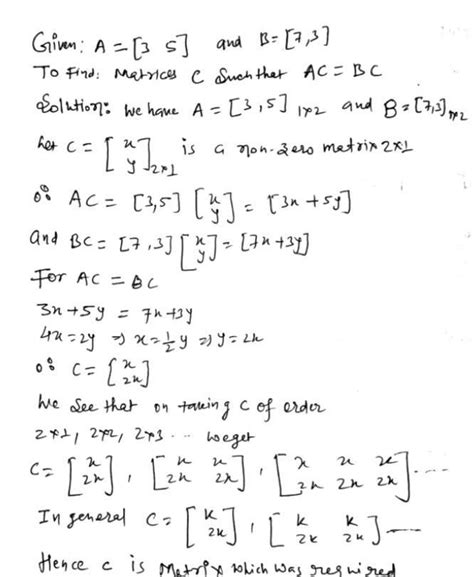 Given: A = [3 5] and B = [7,3]
To Find: Matrices C Such that AC = BC
Solution: We have A = [3,5] 1×2 and B = [7,3] 1×2
Let C = [x y] 2×1 is a non-zero matrix 2×1
∴ AC = [3,5] [x y] = [3x + 5y]
and BC = [7,3] [x y] = [7x + 3y]
For AC = BC
3x + 5y = 7x + 3y
4x = 2y ⇒ x = 1/2 y ⇒ y = 2x
∴ C = [x 2x]
We See that on taking C of order
2×1, 2×2, 2×3 ... we get
C = [x 2x], [x x 2x 2x], [x x x 2x 2x 2x] ....
In general C = [k 2k], [k k 2k 2k] ....
Hence C is Matrix which was required